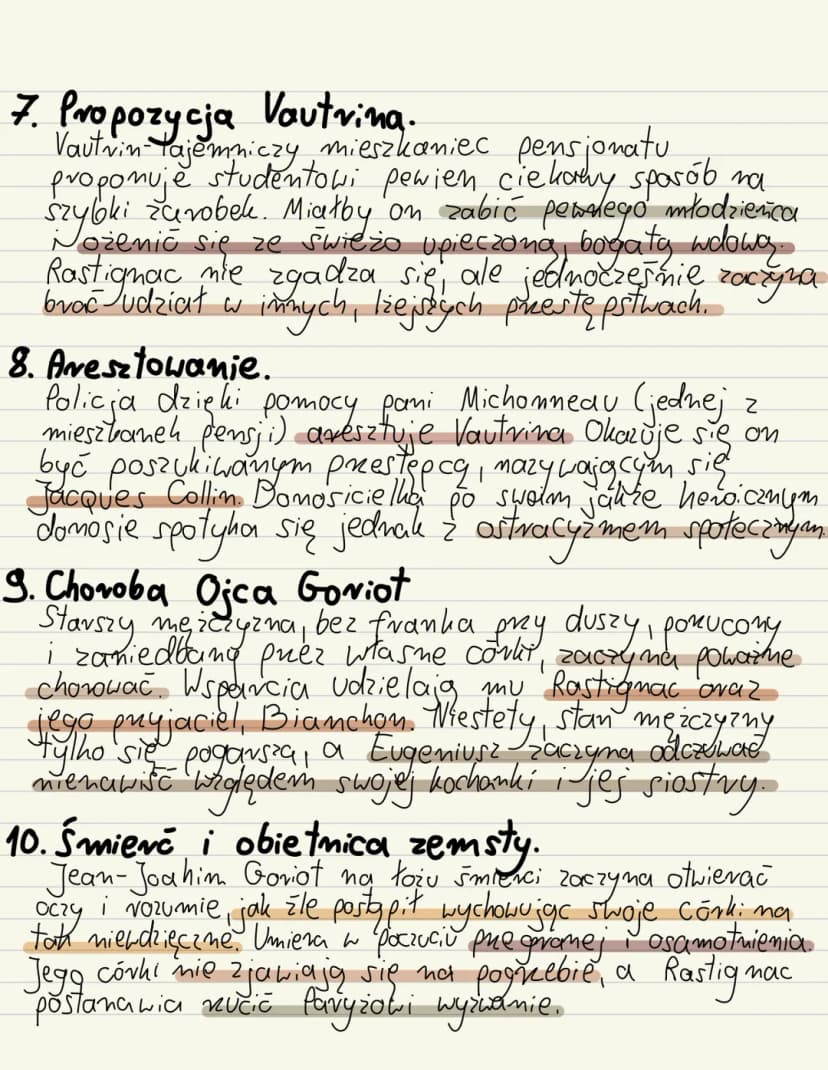 7. Propozycja Vautrina.
Vautrin - tajemniczy mieszkaniec pensjonatu
proponuje studentowi pewien ciekawy sposób na
szybki zarobek. Miałby on zabić pewnego młodzieńca
i ożenić się ze świeżo upieczoną, bogatą wdową.
Rastignac nie zgadza się, ale jednocześnie zaczyna
brać udział w innych, lżejszych przestępstwach.
8. Aresztowanie.
Policja dzięki pomocy pani Michonneau (jednej z
mieszkanek pensji) aresztuje Vautrina Okazuje się on
być poszukiwanym przestępcą, nazywającym się
Jacques Collin. Donosicielka po swoim jakże heroicznym
donosie spotyka się jednak z ostracyzmem społecznym.
9. Choroba Ojca Goriot
Starszy mężczyzna, bez franka przy duszy, porzucony
i zaniedbany przez własne córki, zaczyna poważnie
chorować. Wsparcia udzielają mu Rastignac oraz
jego przyjaciel, Bianchon. Niestety, stan mężczyzny
tylko się pogarsza, a Eugeniusz zaczyna odczuwać
nienawiść względem swojej kochanki i jej siostry.
10. Śmierć i obietnica zemsty.
Jean-Joahim Goriot na łożu śmierci zaczyna otwierać
oczy i rozumie, jak źle postąpił wychowując swoje córki na
tak niewdzięczne. Umiera w poczuciu przegranej i osamotnienia.
Jego córki nie zjawiają się na pogrzebie, a Rastignac
postanawia rzucić Paryżowi wyzwanie.